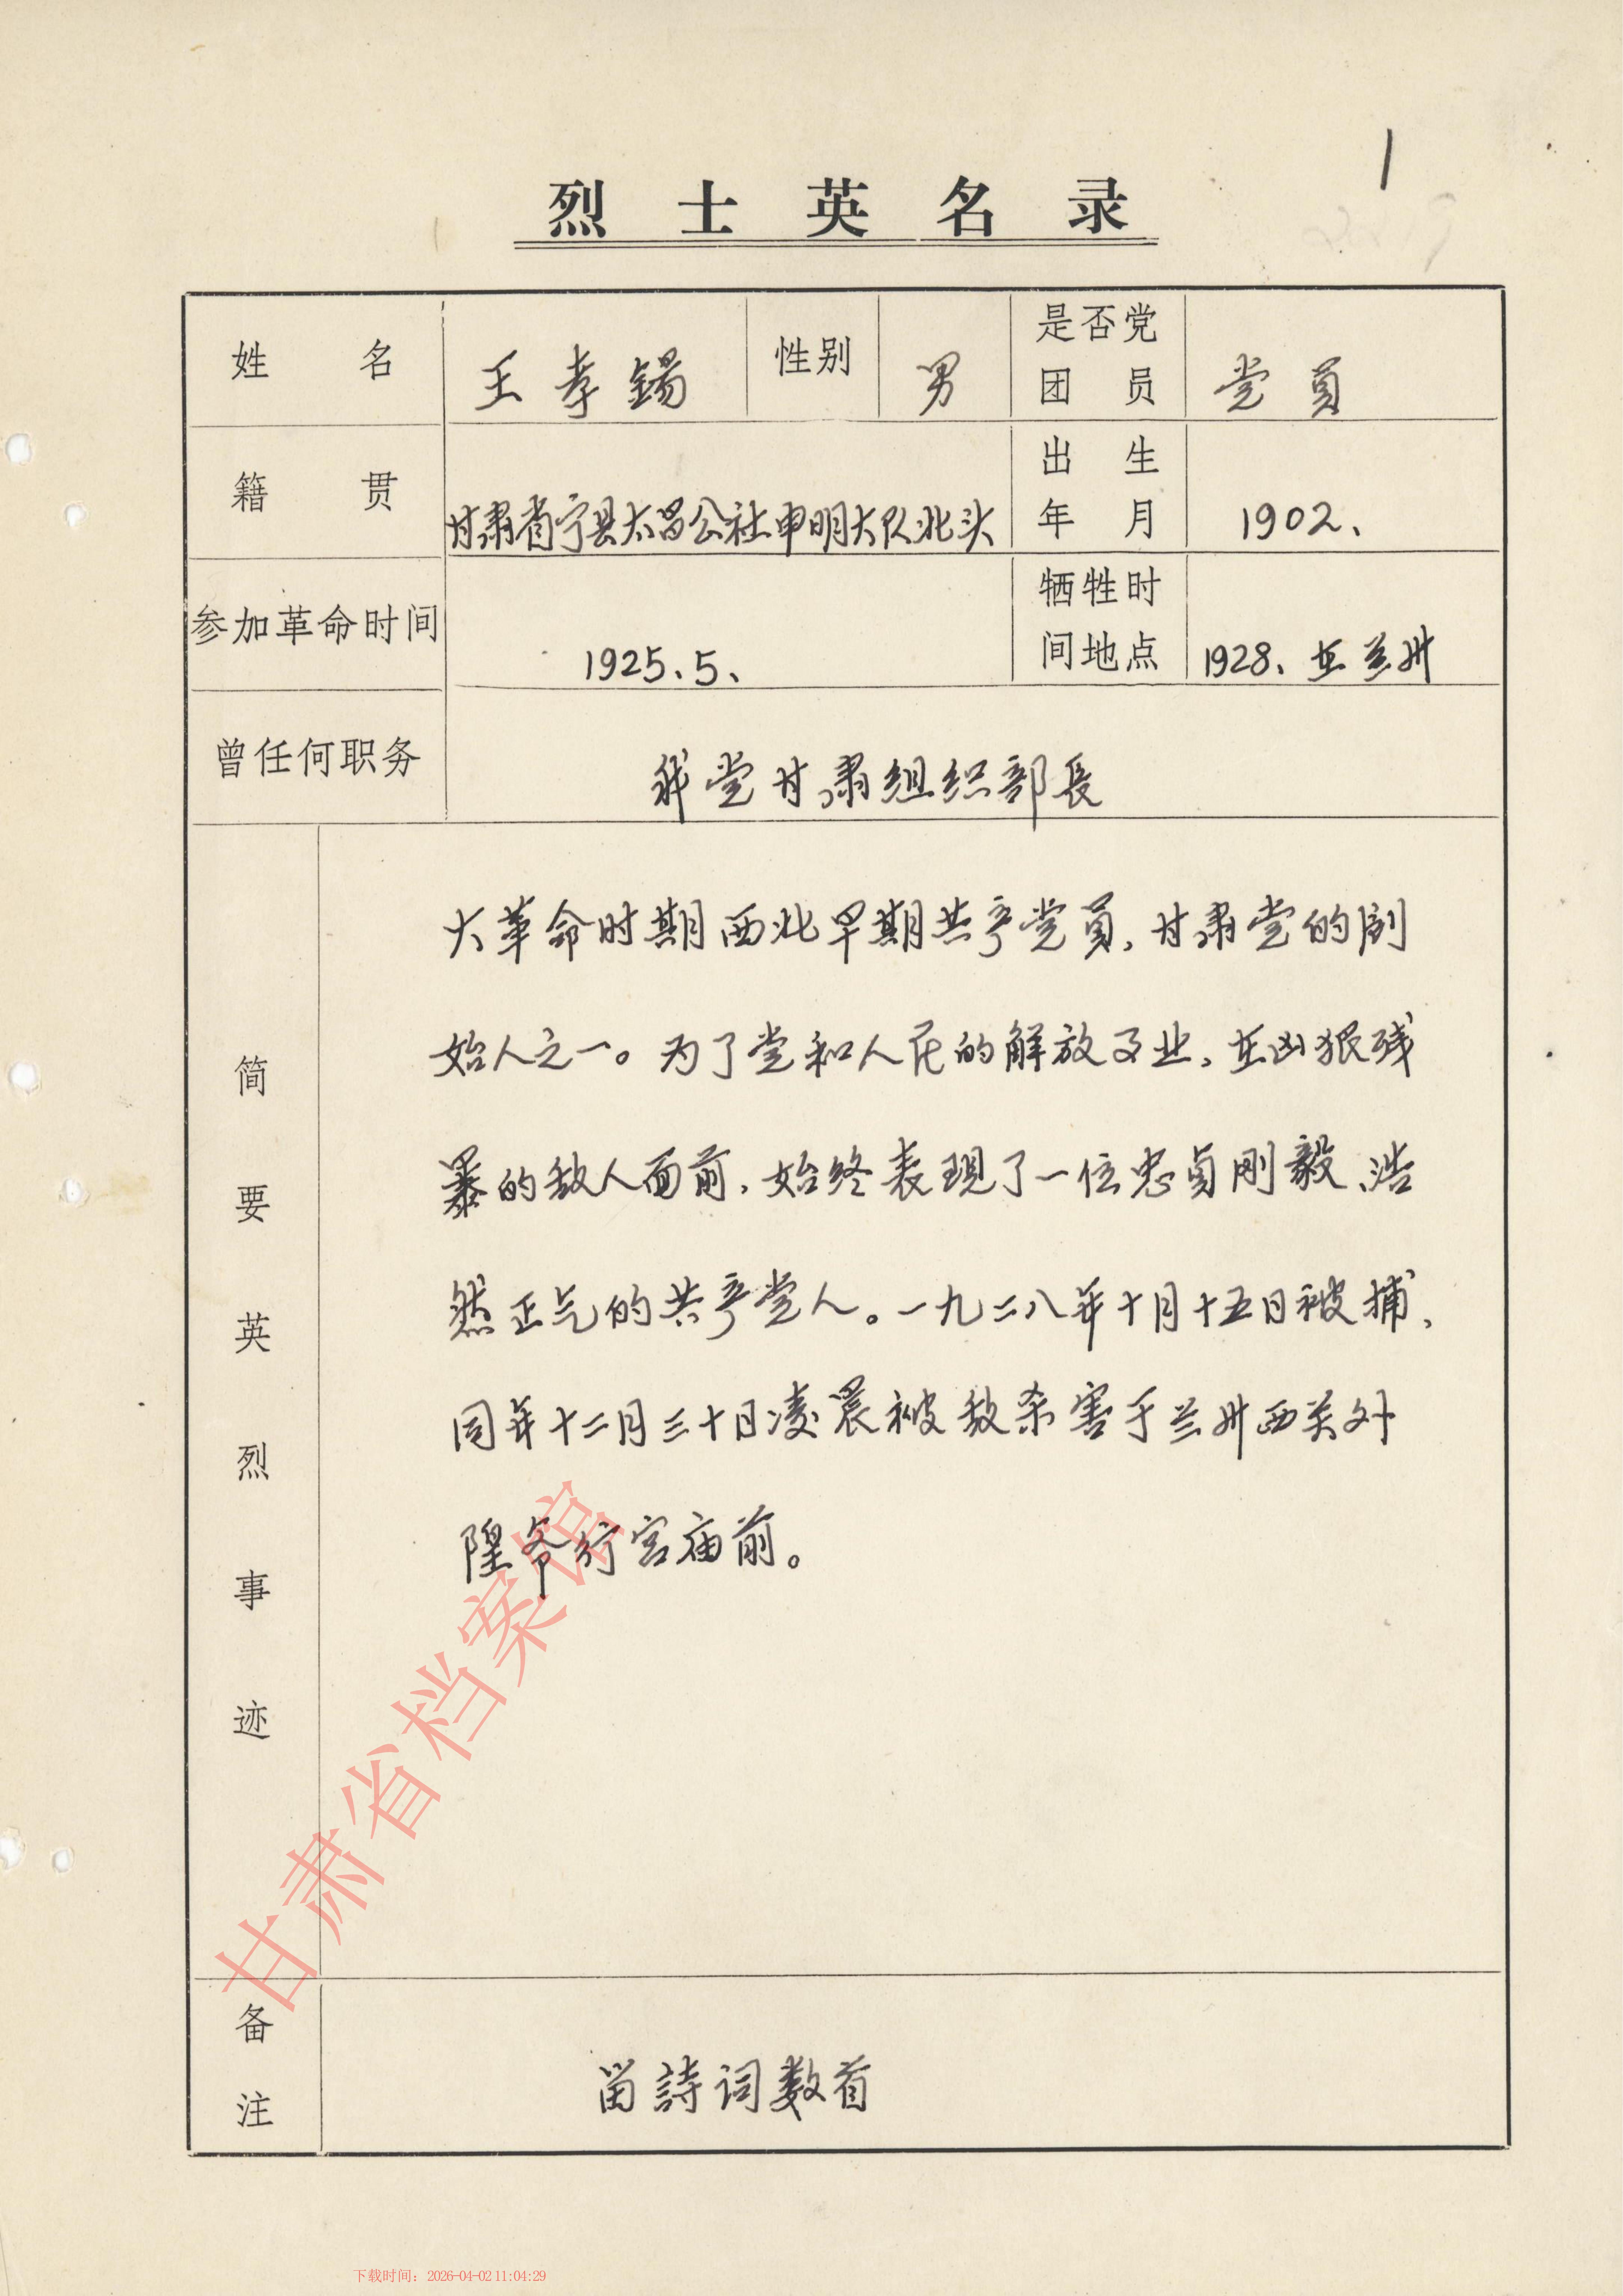 1
烈士英名录
姓名 王孝錫 性别 男 是否党团员 党员
籍贯 甘肃省宁县太昌公社申明大队北头 出生年月 1902、
参加革命时间 1925、5、 牺牲时间地点 1928、在兰州
曾任何职务 我党甘肃组织部長
简要英烈事迹
大革命时期西北早期共产党员、甘肃党的创
始人之一。为了党和人民的解放事业、在凶狠残
暴的敌人面前、始终表现了一位忠貞刚毅、浩
然正气的共产党人。一九二八年十月十五日被捕、
同年十二月三十日凌晨被敌杀害于兰州西关外
隍爷行宫庙前。
备注 留詩词数首
甘肃省档案馆
下载时间：2026-04-02 11:04:29